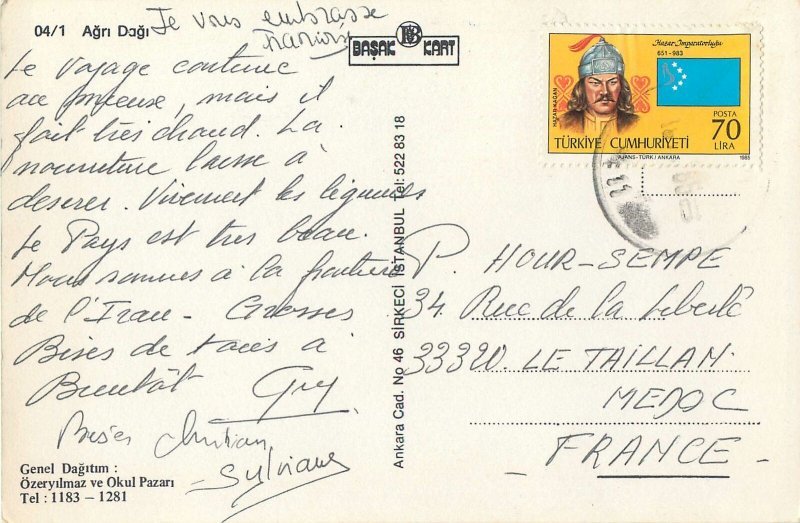 04/1 Ağrı Dağı
Je vous embrasse
BAŞAK KART
Le Voyage continue
au mieux, mais il
fait très chaud. La
nourriture laisse à
désirer. Vivement les légumes
Le Pays est très beau.
Nous sommes à la frontière
de l'Iran - Grosses
Bises de tous à
Bientôt Guy
Bises Christian
Sylviane
Genel Dağıtım :
Özeryılmaz ve Okul Pazarı
Tel : 1183 – 1281
Ankara Cad. No 46 SİRKECİ İSTANBUL Tel: 522 83 18
Hazar İmparatorluğu
651 - 983
HAZAR KAĞAN
POSTA
70
LİRA
TÜRKİYE CUMHURİYETİ
AJANS-TÜRK/ANKARA 1985
P. HOUR-SEMPE
34 Rue de la Liberté
33320. LE TAILLAN.
MEDOC
- FRANCE -